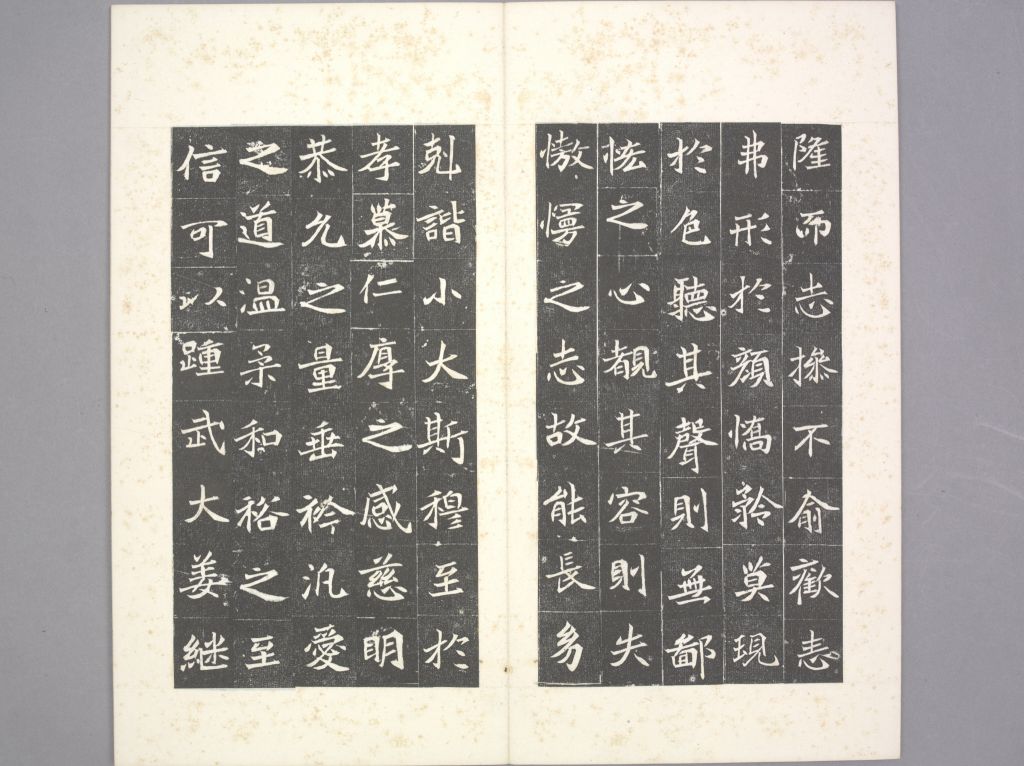 隆而志操不俞歡恚
弗形於顏憍矜莫現
於色聽其聲則無鄙
恡之心覩其容則失
慠慢之志故能長幼
剋諧小大斯穆至於
孝慕仁厚之感慈明
恭允之量垂衿汎愛
之道温柔和裕之至
信可以踵武大姜継